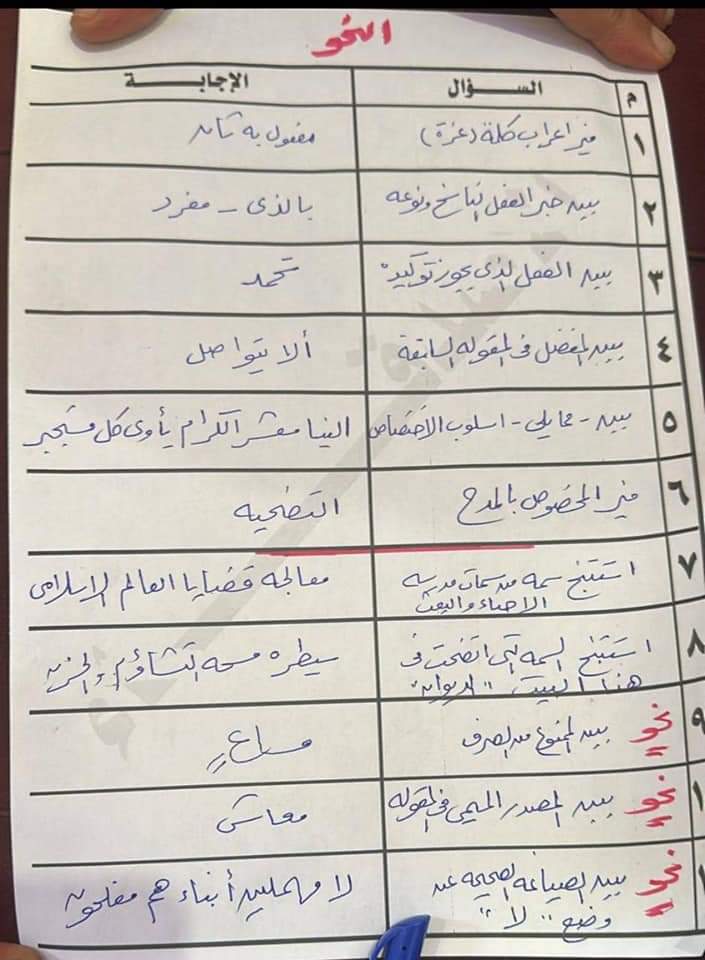 النحو
م السؤال الإجابة
١ ميز اعراب كلمة (عزة) مفعول به ثان
٢ بين خبر الفعل الناسخ ونوعه بالذى - مفرد
٣ بين الفعل الذى يجوز توكيده تحمد
٤ بين المفضل فى المقوله السابقة ألا يتواصل
٥ بين - مما يلي - اسلوب الاختصاص الينا معشر الكرام يأوى كل مستجير
٦ ميز المخصوص بالمدح التضحيه
٧ استنتج سمه من سمات مدرسه الاحياء والبعث معالجه قضايا العالم الاسلامى
٨ استنتج السمه التى اتضحت فى هذا البيت "الديوان" سيطره مسحه التشاؤم والحزن
٩ نحو بين الممنوع من الصرف مساعٍ
١ نحو بين المصدر الميمى فى المقوله معاش
١ نحو بين الصياغه الصحيحه عند وضع "لا" لا مهملين أبناءهم مفلحون